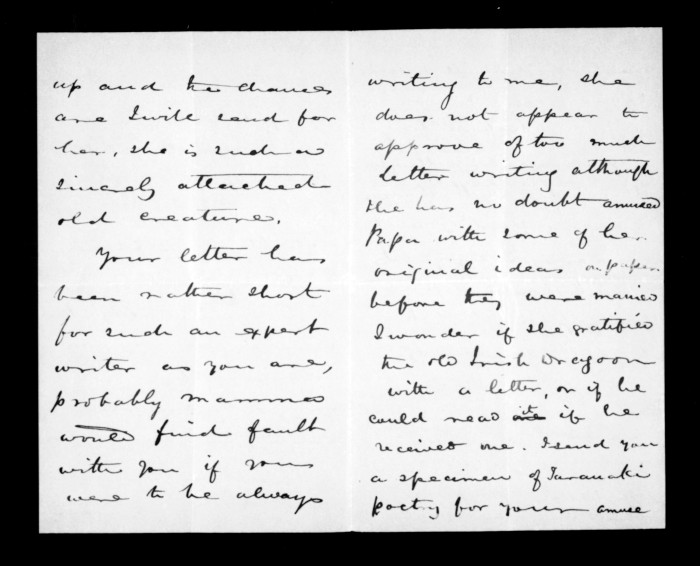 up and the chances
are I will send for
her, she is such a
sincerely attached
old creature.
Your letter has
been rather short
for such an expert
writer as you are,
probably mamma
would find fault
with you if yours
were to be always
writing to me, she
does not appear to
approve of too much
letter writing although
she has no doubt amused
Papa with some of her
original ideas on paper
before they were married
I wonder if she gratified
the old Irish Dragoon
with a letter, or if he
could read it if he
received one. I send you
a specimen of Taranaki
poetry for your amuse